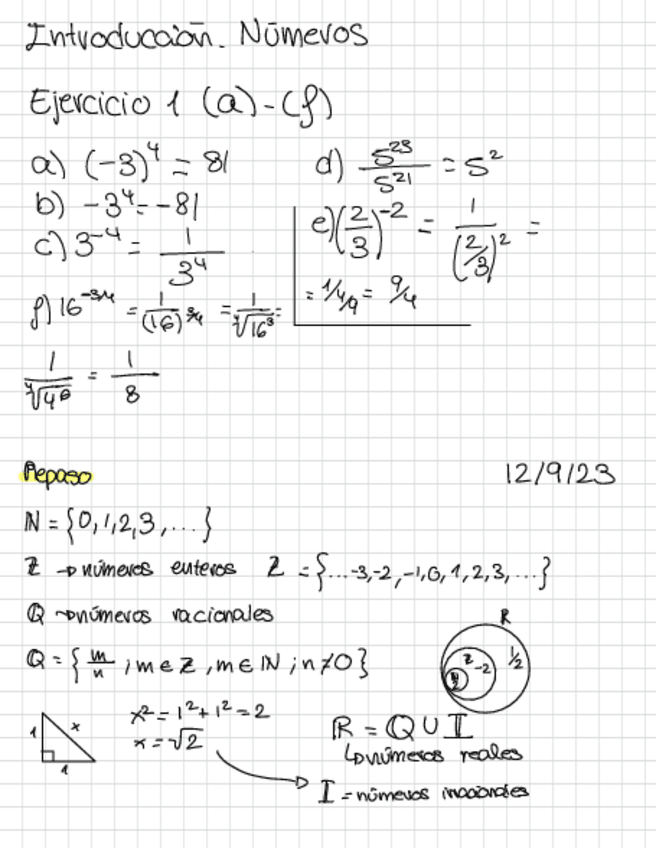 Introducción. Números
Ejercicio 1 (a)-(f)
a) (-3)^4 = 81
b) -3^4 = -81
c) 3^-4 = 1/3^4
d) 5^23/5^21 = 5^2
e) (2/3)^-2 = 1/(2/3)^2 =
= 1/4/9 = 9/4
f) 16^-3/4 = 1/(16)^3/4 = 1/∜16^3 =
1/∜4^6 = 1/8
Repaso
12/9/23
N = {0,1,2,3,...}
Z → números enteros Z = {...-3,-2,-1,0,1,2,3,...}
Q → números racionales
Q = { m/n ; m ∈ Z , m ∈ N ; n ≠ 0 }
R
Z
-2
1/2
N
2
1
x
1
x^2 = 1^2 + 1^2 = 2
x = √2
R = Q ∪ I
↳ números reales
I = números irracionales